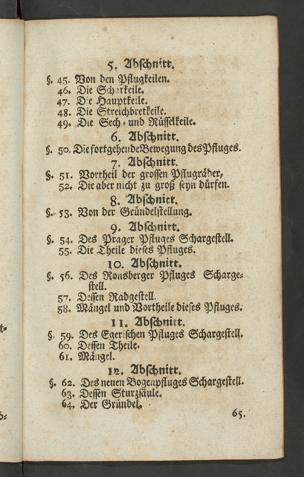 5. Abschnitt.
§. 45. Von den Pflugkeilen.
46. Die Scharkeile.
47. Die Hauptkeile.
48. Die Streichbretkeile.
49. Die Sech- und Rüsselkeile.
6. Abschnitt.
§. 50. Die fortgehende Bewegung des Pfluges.
7. Abschnitt.
§. 51. Vortheil der grossen Pflugräder,
52. Die aber nicht zu groß seyn dürfen.
8. Abschnitt.
§. 53. Von der Gründelstellung.
9. Abschnitt.
§. 54. Des Prager Pfluges Schargestell.
55. Die Theile dieses Pfluges.
10. Abschnitt.
§. 56. Des Ronsberger Pfluges Scharge-
stell.
57. Dessen Radgestell.
58. Mängel und Vortheile dieses Pfluges.
11. Abschnitt.
§. 59. Des Egerischen Pfluges Schargestell.
60. Dessen Theile.
61. Mängel.
12. Abschnitt.
§. 62. Des neuen Bogenpfluges Schargestell.
63. Dessen Sturzsäule.
64. Der Gründel.
65.